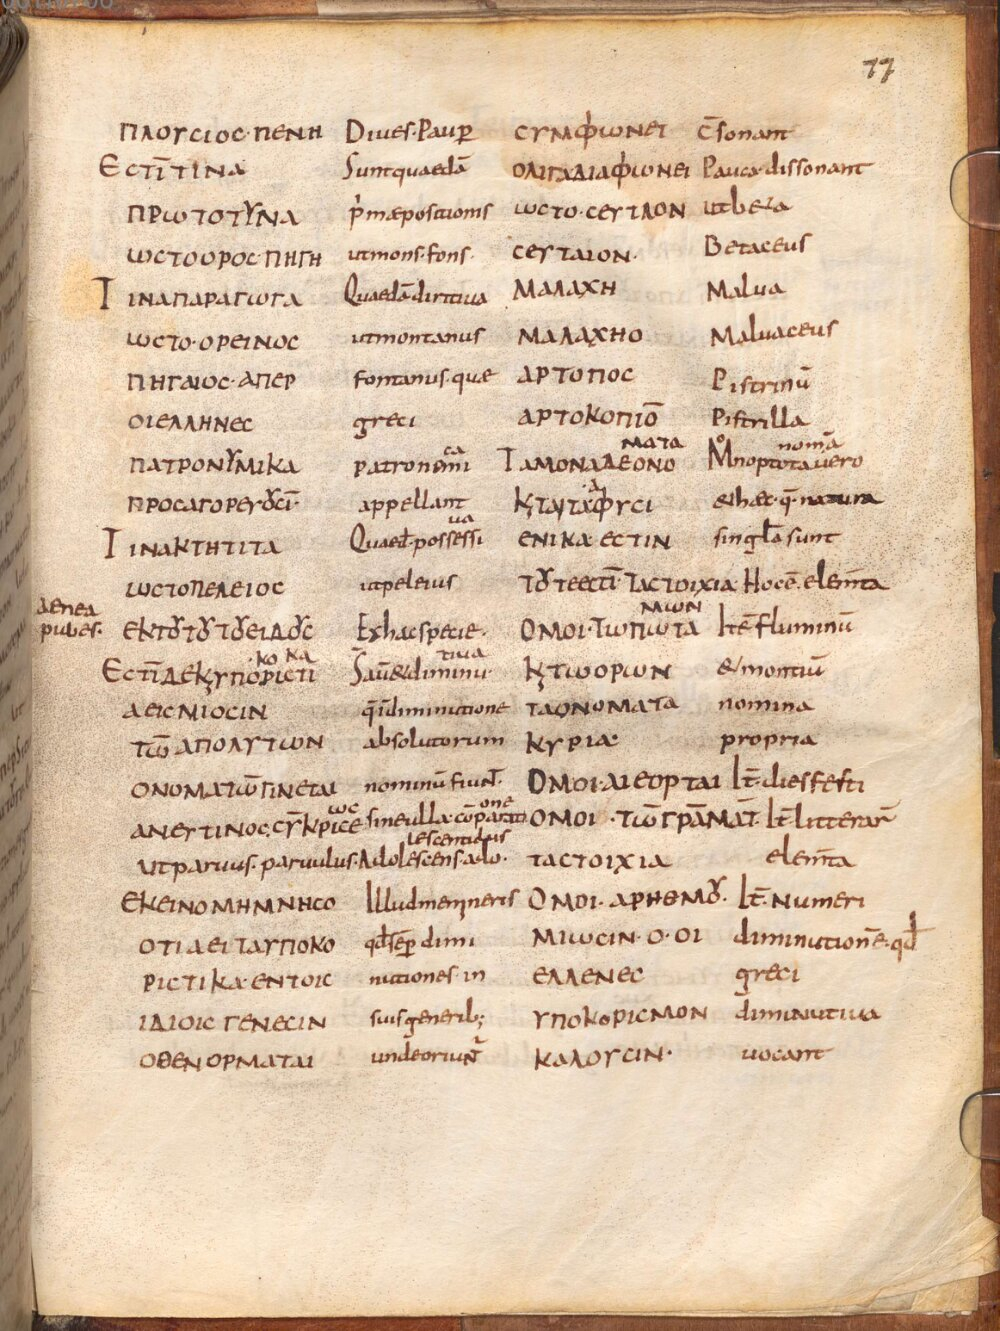 77
ΠΛΟΥCΙΟC·ΠΕΝΗ Diues·Paup̲ CΥΜΦΩΝΕΙ c̄sonant
ЄCΤῙΤΙΝΑ Suntquaedā ΟΛΙΓΑΔΙΑΦΩΝΕΙ Pauca·dissonant
ΠΡΩΤΟΤΥΝΑ p̄mæpositionis ΩCΤΟ·CΕΥΤΛΟΝ utbeta
ΩCΤΟΟΡΟC·ΠΗΓΗ utmons·fons· CΕΥΤΑΙΟΝ· Betaceus
ΤΙΝΑΠΑΡΑΓΩΓΑ Quaedā diritiua ΜΑΛΑΧΗ Malua
ΩCΤΟ·ΟΡΕΙΝΟC utmontanus ΜΑΛΑΧΗΟ Maluaceus
ΠΗΓΑΙΟC·ΑΠΕΡ fontanus quæ ΑΡΤΟΠΟC Pistrinū
ΟΙΕΛΛΗΝΕC greci ΑΡΤΟΚΟΠΙŌ Pistrilla
ca ΜΑΤΑ nom̄a
ΠΑΤΡΟΝΥΜΙΚΑ patronemi ΤΑΜΟΝΑΔΕΟΝΟ Monoptotauero
ΠΡΟCΑΓΟΡΕΥȢCῙ appellant &hæc·q̄·natura
ua
ΤΙΝΑΚΤΗΤΙΤΑ Quaed̄·possessi ΕΝΙΚΑ ΕCΤΙΝ singl̄a sunt
ΩCΤΟΠΕΛΕΙΟC utpeleius ΤȢΤΕΕCΤῙ ΤΑCΤΟΙΧΙΑ Hocē·elem̄ta
aenea ΜΩΝ
pubes· ΕΚΤȢΤȢΤȢΕΙΔȢC Exhacspecie· ΟΜΟΙ·ΤΩΠΩΤΑ It̄ē fluminū
ΚΟ ΚΑ tiua
ЄCΤῙΔΕΚϚΥΠΟΡΙCΤΙ S̄aū&diminu ΚϚΤΩΟΡΩΝ &montiū
ΑΕΙCΜΙΟCΙΝ q̄i diminutione ΤΑΟΝΟΜΑΤΑ nomina
ΤΩ̄ ΑΠΟΛΥΤΩΝ absolutorum ΚΥΡΙΑ propria
ΟΝΟΜΑΤΩ̄ΓΙΝΕΤΑΙ nominū fiun̄t ΟΜΟΙ·ΑΙΕΟΡΤΑΙ It̄·diesfesti
ΩC one
ΑΝΕΥΤΙΝΟC·CῩΚΡΙCΕ sineulla·cōparati ΟΜΟΙ·ΤΩ̄ΓΡᾹΜΑΤ̄· It̄·litterar̄
lescentulus
utparuus·paruulus·Adolescens·ado· ΤΑCΤΟΙΧΙΑ elem̄ta
ΕΚΕΙΝΟΜΗΜΝΗCΟ Illudmemineris ΟΜΟΙ·ΑΡΗΘΜȢ· It̄·Numeri
ΟΤΙΑΕΙΤΑΥΠΟΚΟ qd̄sēp̲ dimi ΜΙΩCΙΝ·Ο·ΟΙ diminutionē·qd̄
ΡΙCΤΙΚΑ·ΕΝΤΟΙC nutiones·in ΕΛΛΕΝΕC greci
ΙΔΙΟΙC ΓΕΝΕCΙΝ suisgenerib; ΥΠΟΚΟΡΙCΜΟΝ diminutiua
ΟΘΕΝΟΡΜΑΤΑΙ undēoriun̄t ΚΑΛΟΥCΙΝ· uocant